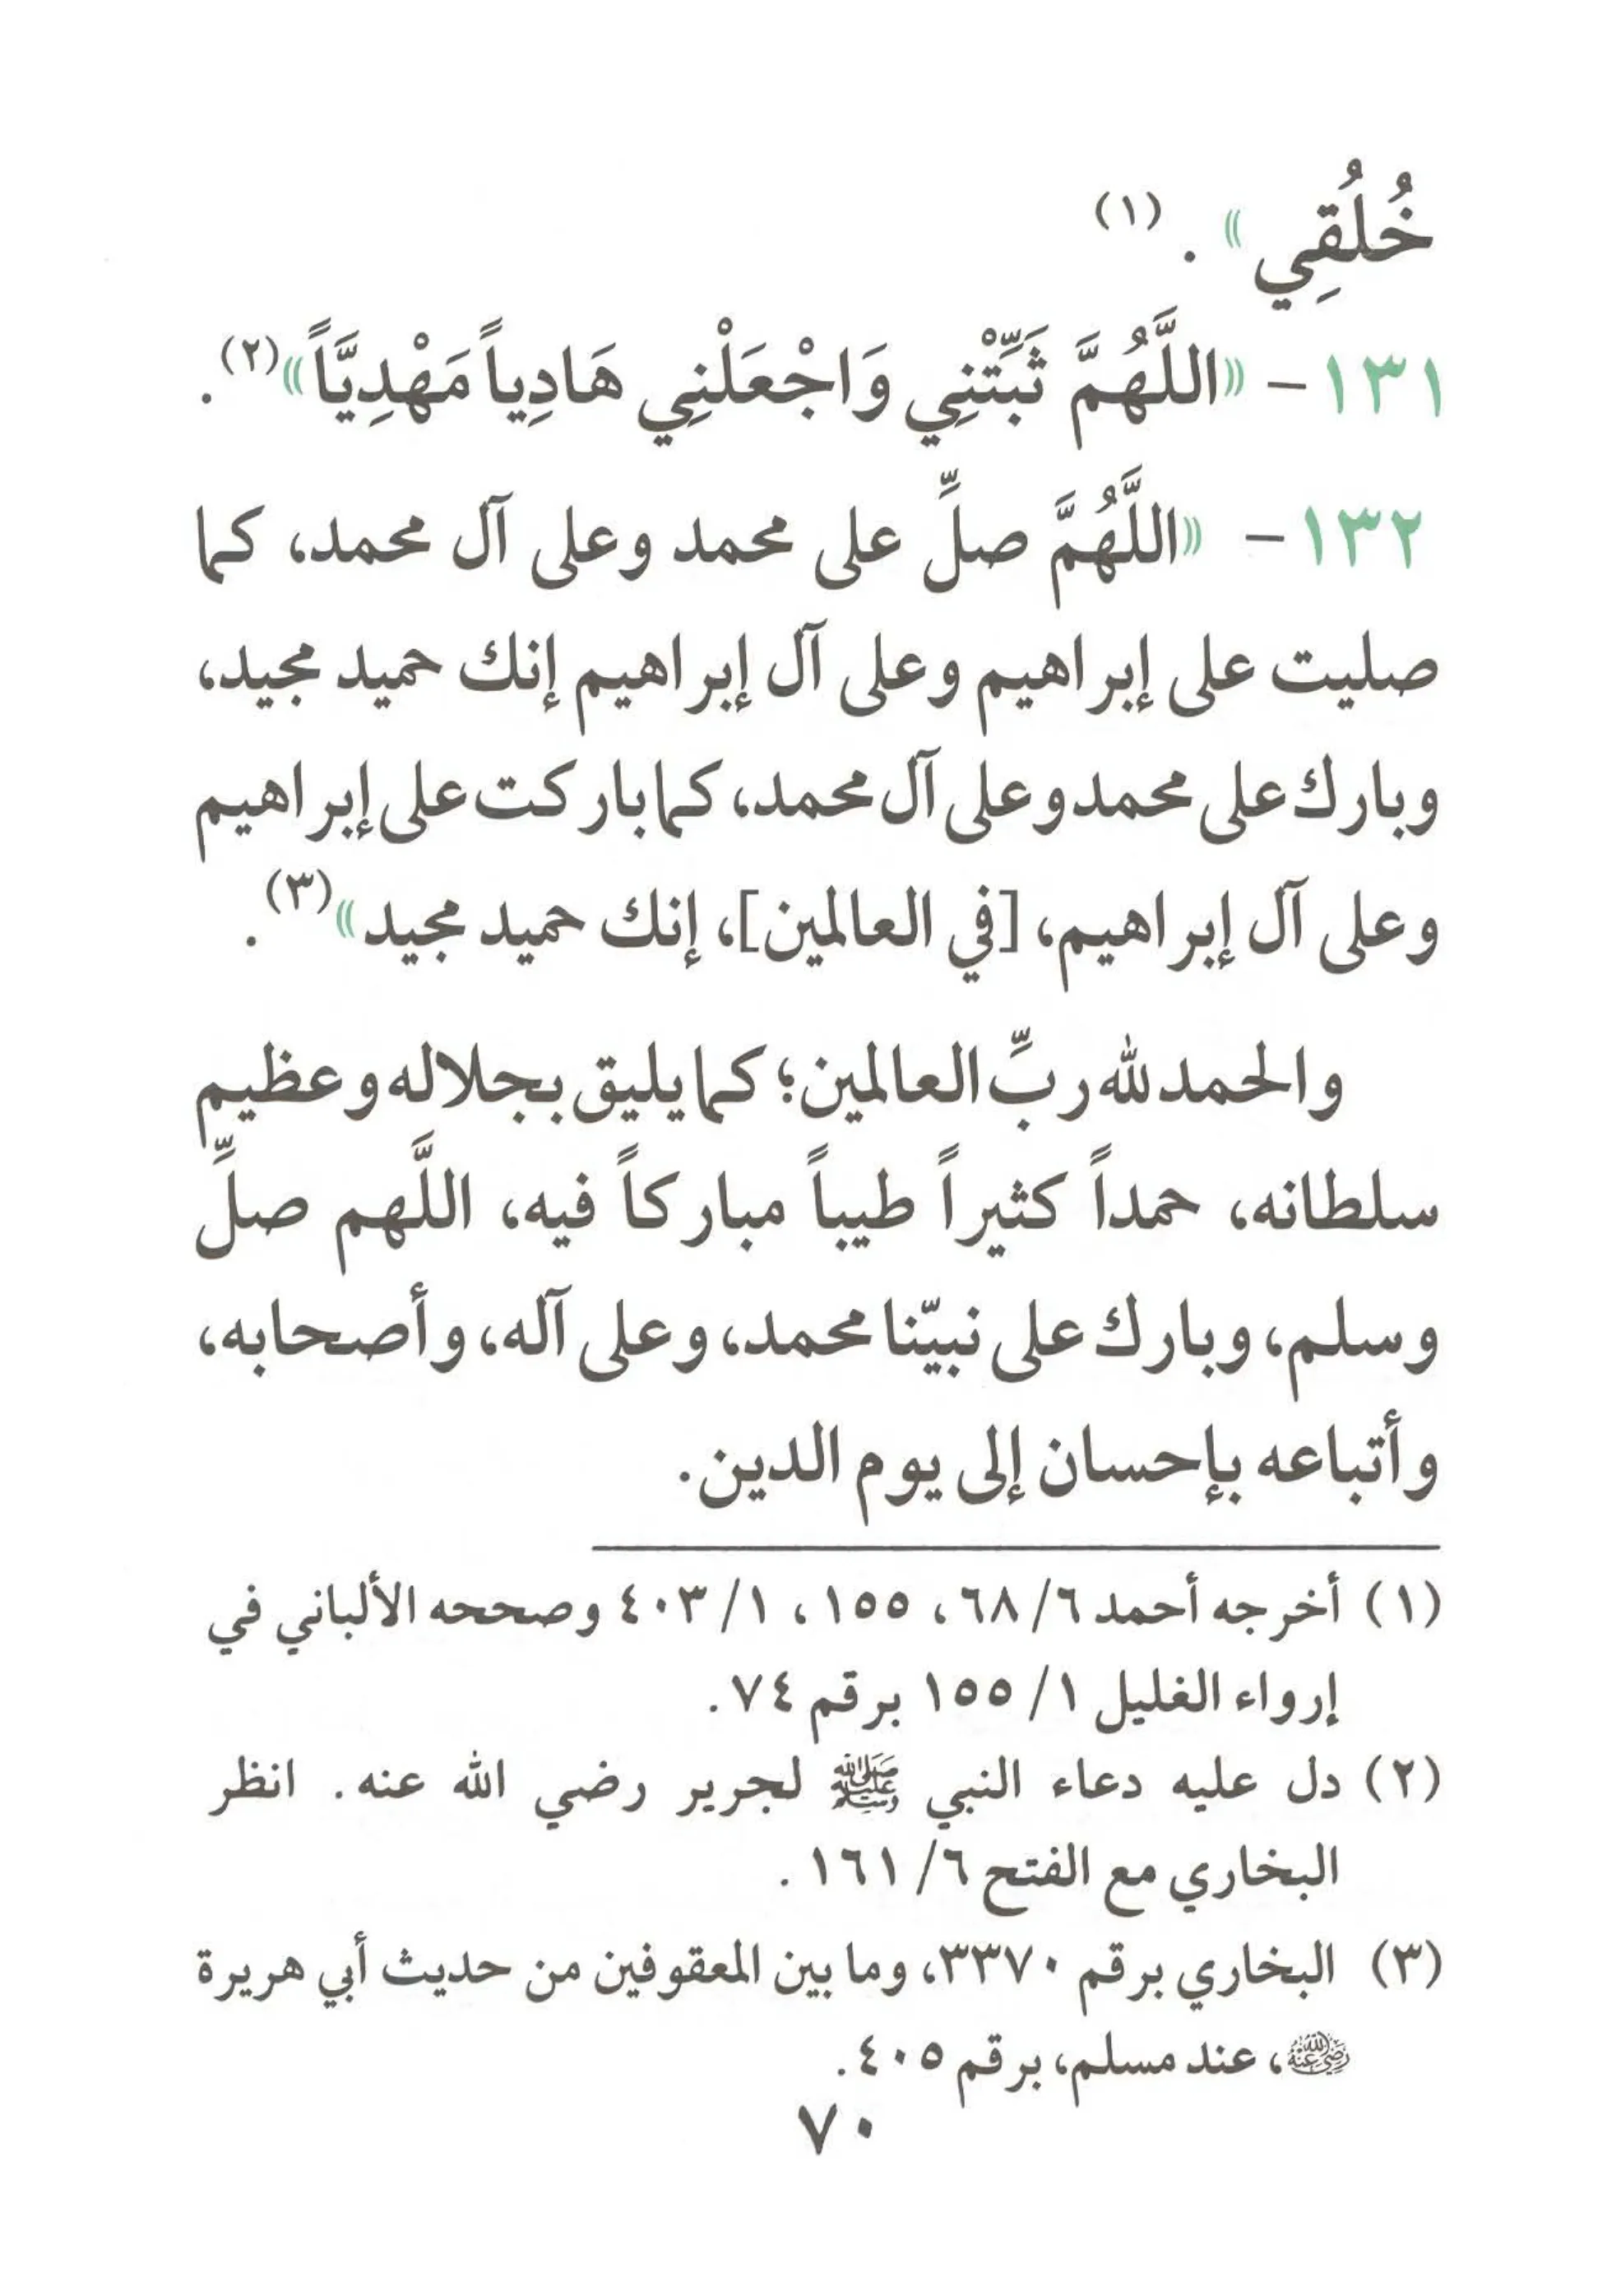 خُلُقِي » . (١)
١٣١- «اللَّهُمَّ ثَبِّتْنِي وَاجْعَلْنِي هَادِياً مَهْدِيَّاً»(٢).
١٣٢- «اللَّهُمَّ صلِّ على محمد وعلى آل محمد، كما
صليت على إبراهيم وعلى آل إبراهيم إنك حميد مجيد،
وبارك على محمد وعلى آل محمد، كما باركت على إبراهيم
وعلى آل إبراهيم، [في العالمين]، إنك حميد مجيد»(٣).
والحمد لله ربِّ العالمين؛ كما يليق بجلاله وعظيم
سلطانه، حمداً كثيراً طيباً مباركاً فيه، اللَّهم صلِّ
وسلم، وبارك على نبيّنا محمد، وعلى آله، وأصحابه،
وأتباعه بإحسان إلى يوم الدين.
(١) أخرجه أحمد ٦/ ٦٨، ١٥٥، ١/ ٤٠٣ وصححه الألباني في
إرواء الغليل ١/ ١٥٥ برقم ٧٤.
(٢) دل عليه دعاء النبي ﷺ لجرير رضي الله عنه. انظر
البخاري مع الفتح ٦/ ١٦١.
(٣) البخاري برقم ٣٣٧٠، وما بين المعقوفين من حديث أبي هريرة
رضي الله عنه، عند مسلم، برقم ٤٠٥.
٧٠